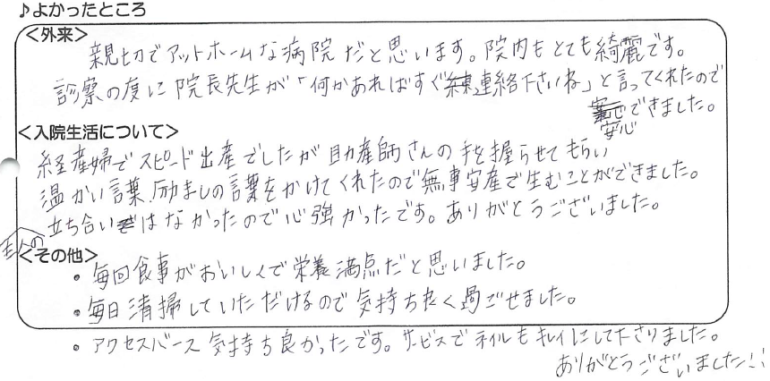 ♪よかったところ
<外来>
親切でアットホームな病院だと思います。院内もとても綺麗です。
診察の度に院長先生が「何かあればすぐ連絡下さいね」と言ってくれたので
安心できました。
<入院生活について>
経産婦でスピード出産でしたが助産師さんの手を握らせてもらい
温かい言葉、励ましの言葉をかけてくれたので無事安産で生むことができました。
主人の立ち合いはなかったので心強かったです。ありがとうございました。
<その他>
・毎回食事がおいしくて栄養満点だと思いました。
・毎日清掃していただけるので気持ち良く過ごせました。
・アクセスバース気持ち良かったです。サービスでネイルもキレイにして下さりました。
ありがとうございました!!